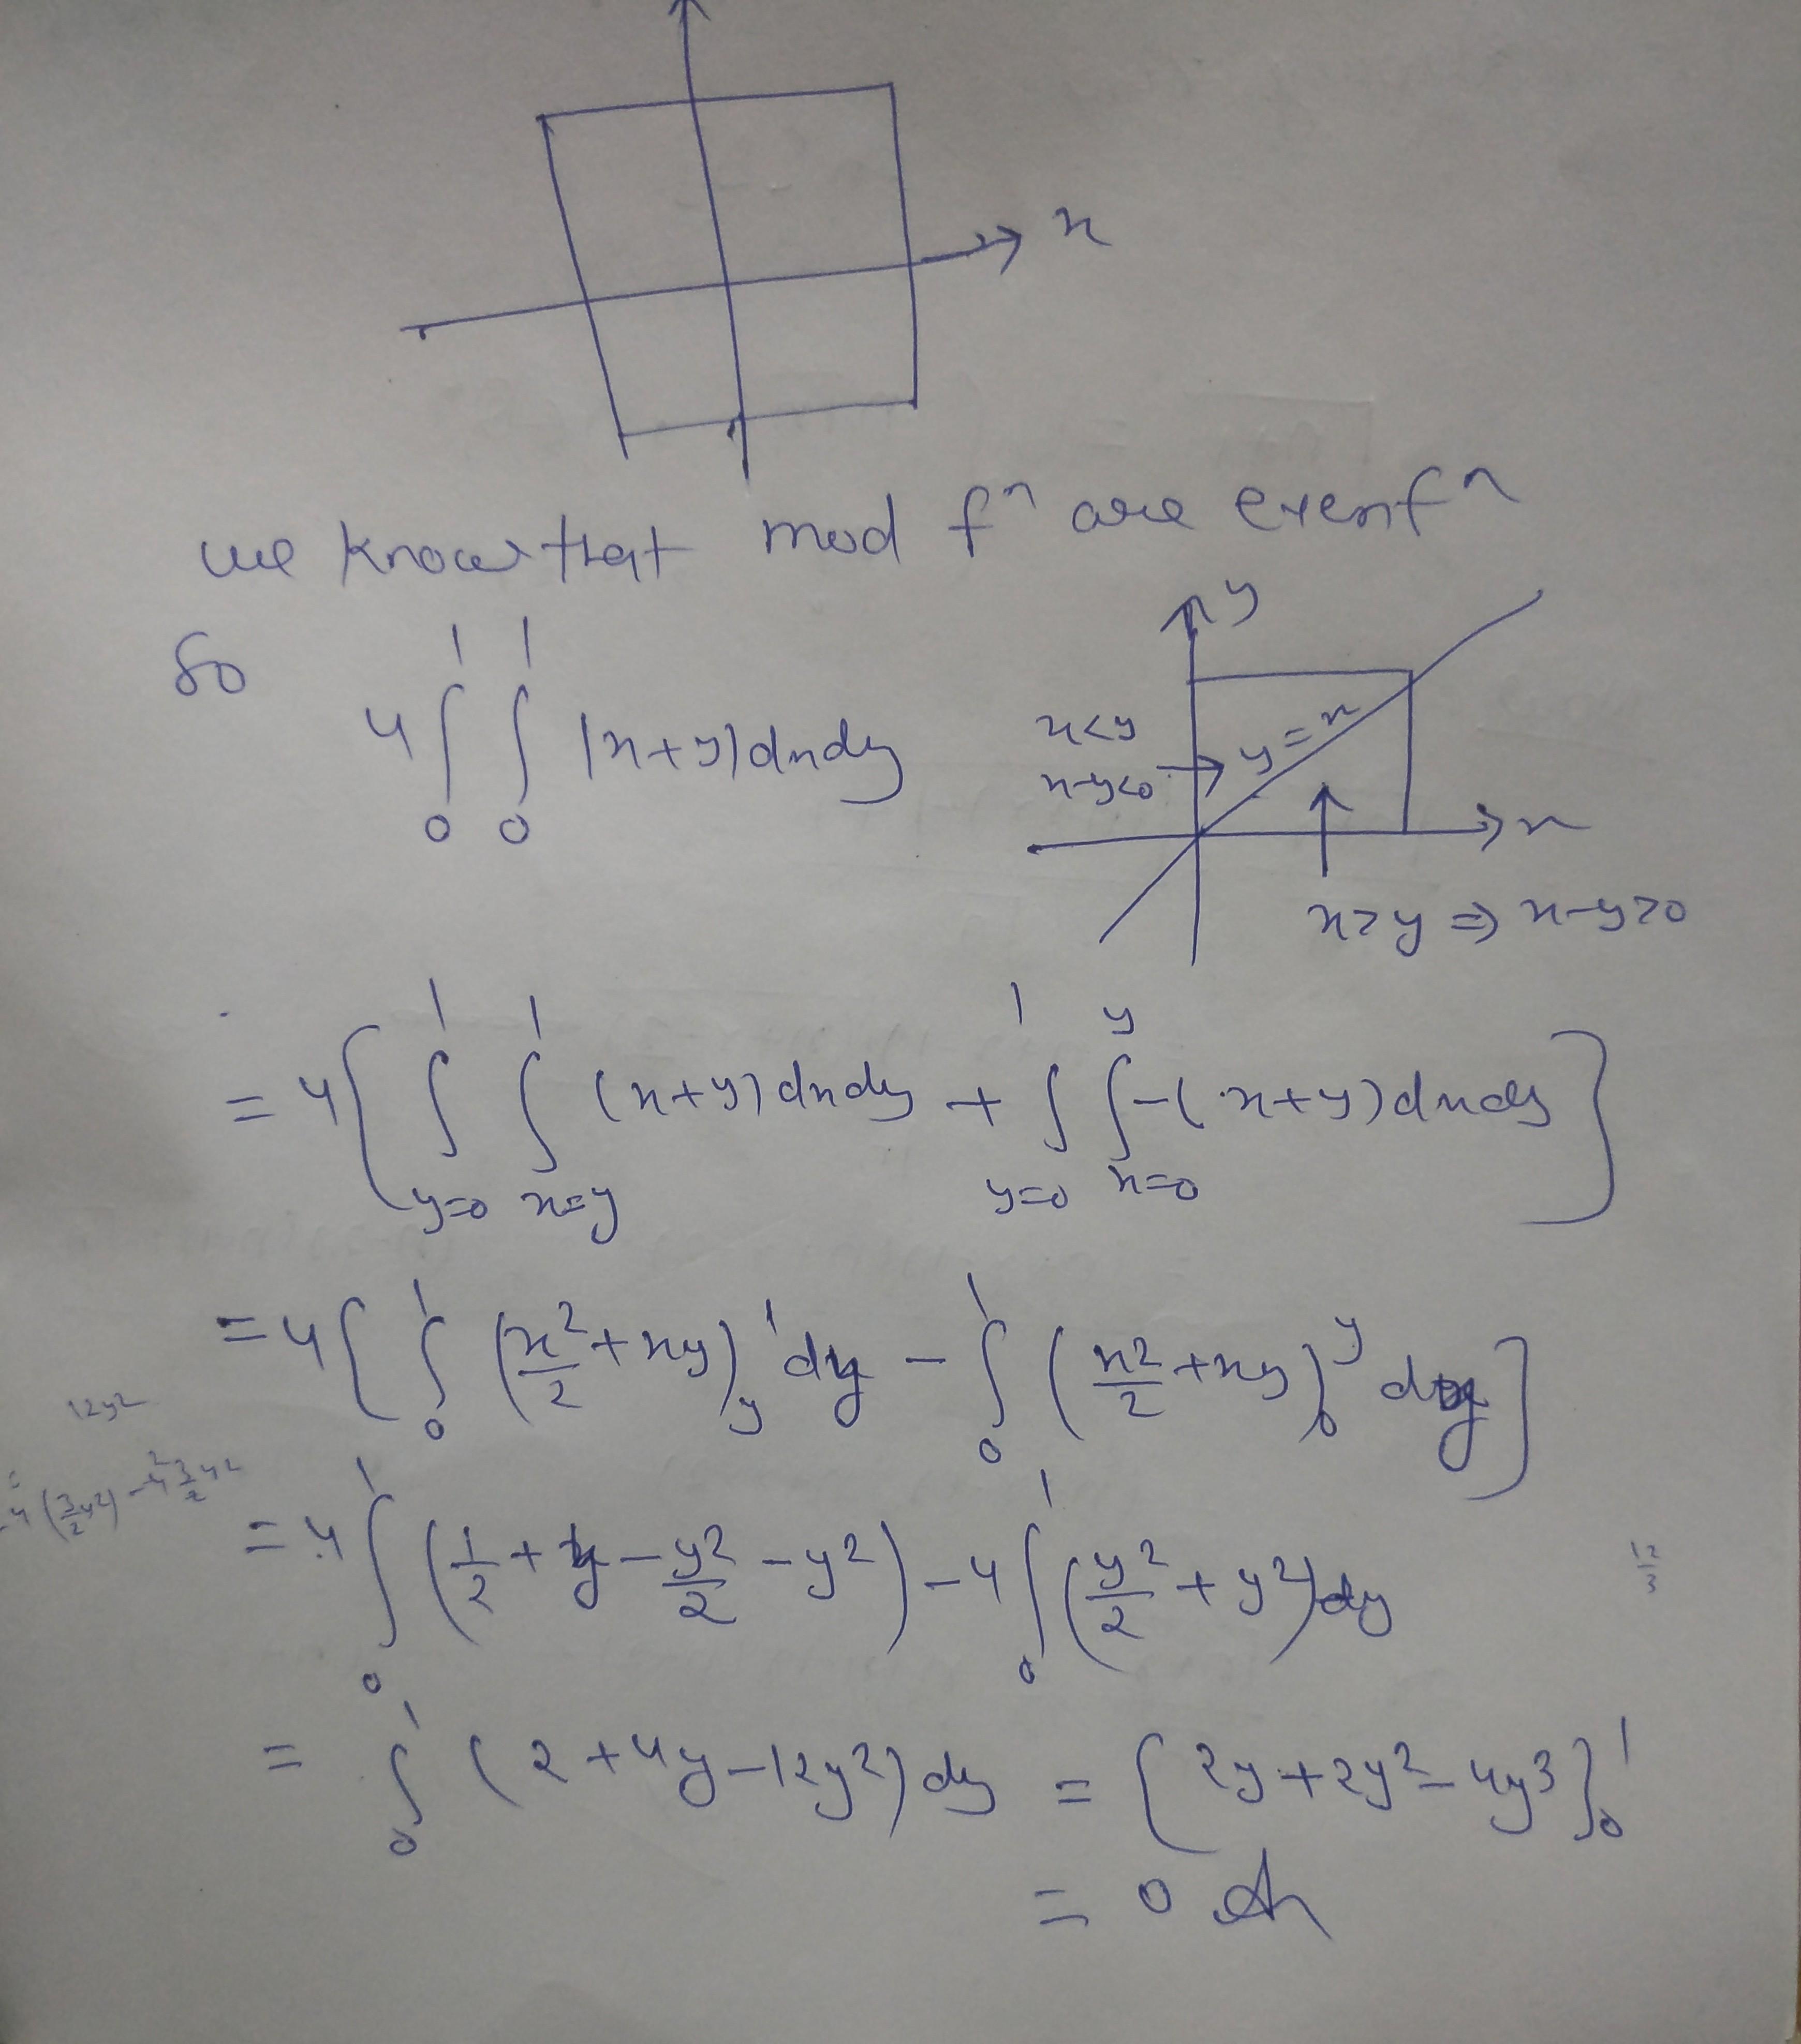 x
we know that mod fⁿ are even fⁿ
y
So 4∫₀¹∫₀¹ |x+y|dxdy
x<y
x-y<0
y=x
x
x>y ⇒ x-y>0
= 4{ ∫_{y=0}^{1} ∫_{x=y}^{1} (x+y)dxdy + ∫_{y=0}^{1} ∫_{x=0}^{y} -(x+y)dxdy }
= 4{ ∫₀¹ (x²/2 + xy)_y^1 dy - ∫₀¹ (x²/2 + xy)_0^y dy }
12y²
= 4∫₀¹ (1/2 + y - y²/2 - y²) - 4∫₀¹ (y²/2 + y²)dy
12/3
= ∫₀¹ (2+4y-12y²)dy = {2y+2y²-4y³}₀¹
= 0 Ans